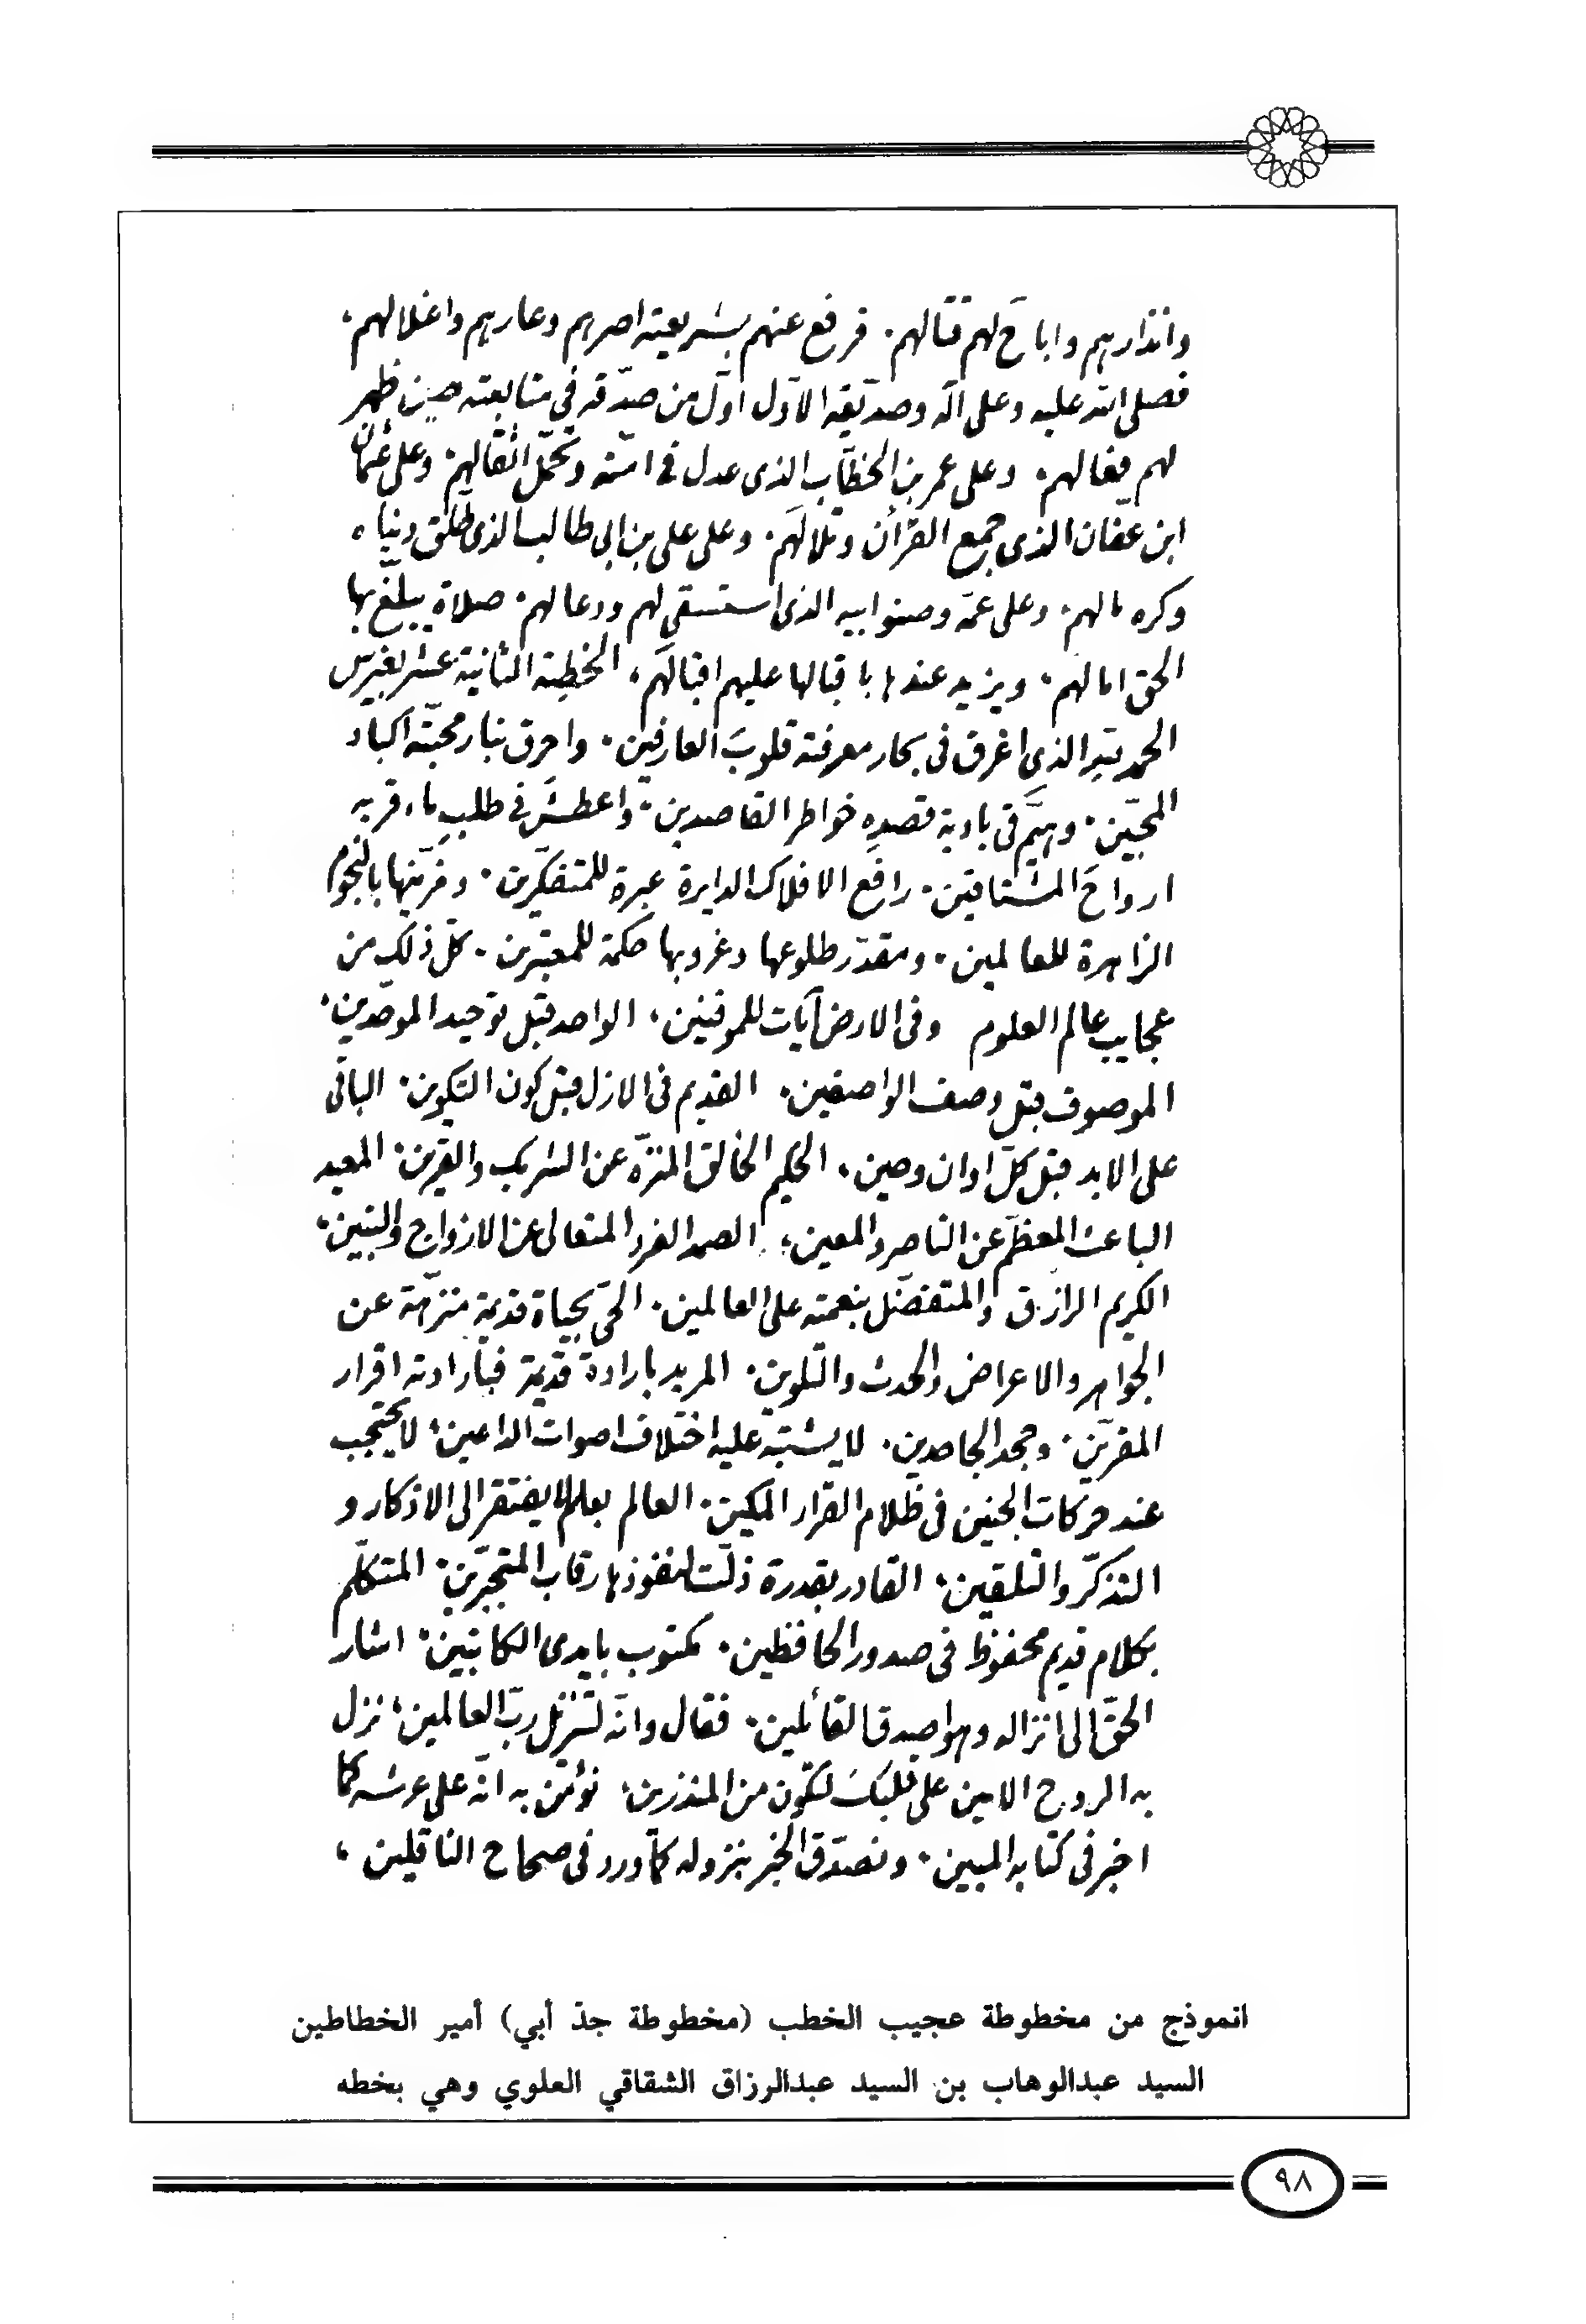 وانذارهم واباحَ لهم قتالهم. فرفع عنهم بشريعته اصرهم وعارهم واغلالهم،
فصلى الله عليه وعلى آله وصدّيقه الاول اوّل من صدّقه في متابعته حين ظهر
لهم فعالهم. وعلى عمر بن الخطّاب الذى عدل فى امّته وتحمّل اثقالهم. وعلى عثمان
ابن عفّان الذى جمع القرآن وتلا لهم. وعلى على بن ابى طالب الذى طلّق دنياه
وكره مالهم. وعلى عمّه وصنو ابيه الذى استسقى لهم ودعا لهم. صلاة يبلّغ بها
الحق امالهم. ويزيد عندها باقبالها عليهم اقبالهم، الخطبة الثانية عشر
الحمد لله الذى اغرق فى بحار معرفته قلوبَ العارفين. واحرق بنار محبّته اكباد
المحبّين. وهيّم فى بادية قصدِهِ خواطر القاصدين. واعطشَ فى طلب ماء قربه
ارواحَ المشتاقين. رافع الافلاك الدايرة عبرة للمتفكّرين. ومزيّنها بالنجوم
الزاهرة للعالمين. ومقدّر طلوعها وغروبها حكمة للمعتبرين. كلّ ذلك من
عجايب عالم العلوم وفى الارض آيات للموقنين، الواحد قبل توحيد الموحّدين.
الموصوف قبل وصف الواصفين. القديم فى الازل قبل كون التكوين. الباقى
على الابد قبل كلّ اوان وحين، الحكيم الخالق المنزّه عن الشريك والقرين. المعيد
الباعث المعظّم عن الناصر والمعين، الصمد الفرد المتعالى عن الازواج والبنين.
الكريم الرازق والمتفضّل بنعمته على العالمين. الحىّ بحياة قديمة منزّهة عن
الجواهر والاعراض والحدث والتلوين. المريد بارادة قديمة فبارادته اقرار
المقرّين. وجحد الجاحدين. لا يشتبه عليه اختلاف اصوات الداعين، لا يحتجب
عند حركات الجنين فى ظلام القرار المكين. العالم بعلم لا يفتقر الى الاذكار و
التذكّر والتلقين، القادر بقدرة ذلّت لنفوذها رقاب المتجبّرين. المتكلّم
بكلام قديم محفوظ فى صدور الحافظين. مكتوب بايدى الكاتبين. اشار
الحقّ الى انزاله وهو اصدق القائلين. فقال وانّه لتنزيل ربّ العالمين، نزل
به الروح الامين على قلبك لتكون من المنذرين، نؤمن به انّه على عرشه كما
اخبر فى كتابه المبين. ونصدّق الخبر بنزوله كما ورد فى صحاح الناقلين،
انموذج من مخطوطة عجيب الخطب (مخطوطة جدّ أبي) أمير الخطاطين
السيد عبدالوهاب بن السيد عبدالرزاق الشقاقي العلوي وهي بخطه
٩٨